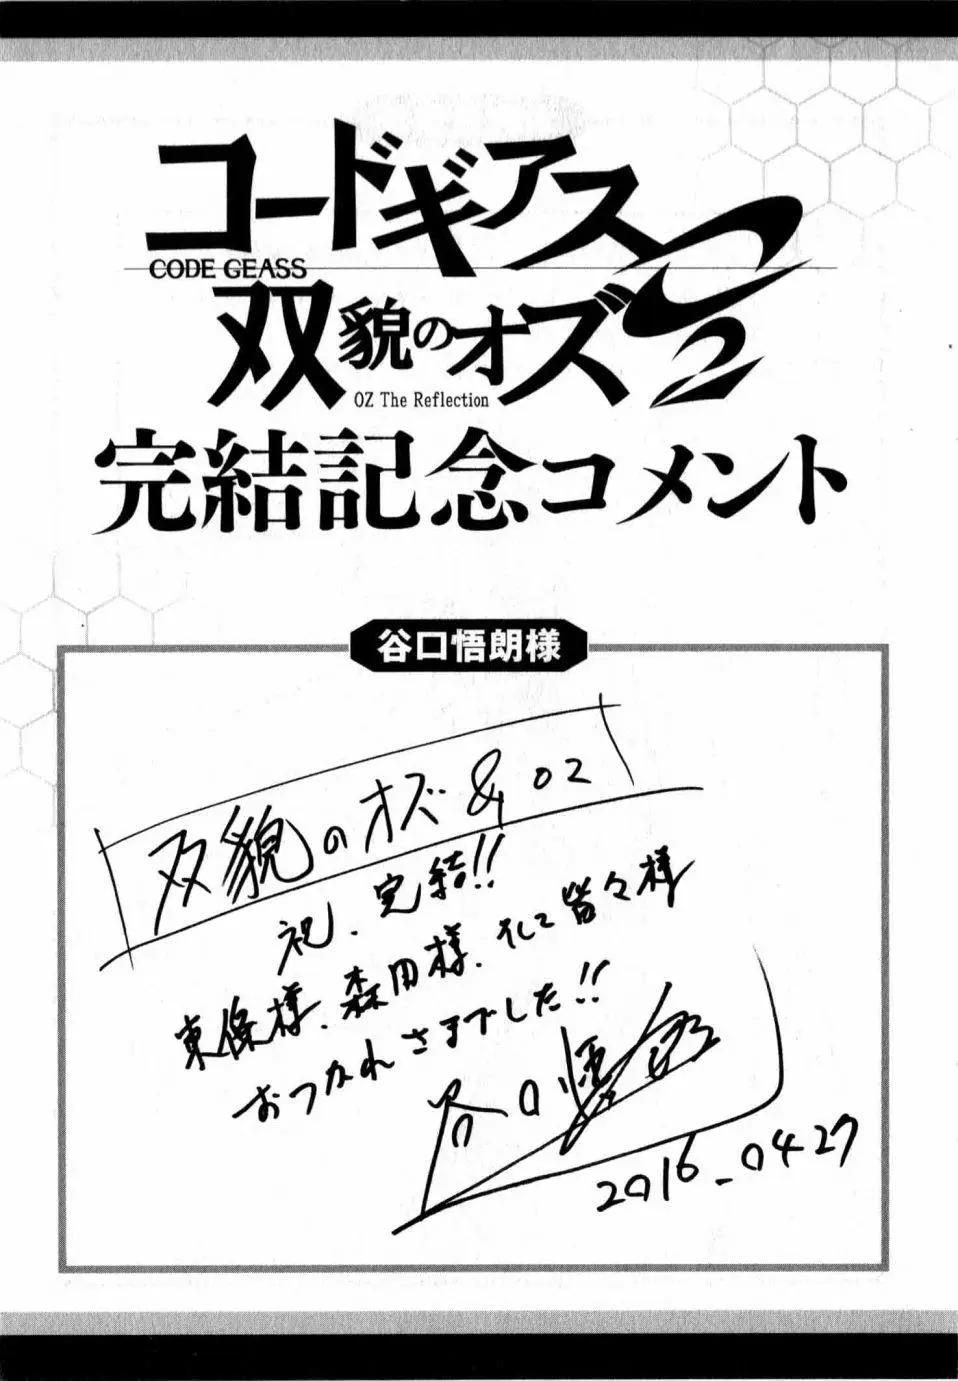 コードギアス
CODE GEASS
双貌のオズO2
OZ The Reflection
完結記念コメント
谷口悟朗様
双貌のオズ&O2
祝、完結!!
東條様、森田様、そして皆々様
おつかれさまでした!!
谷口悟朗
2016_0427